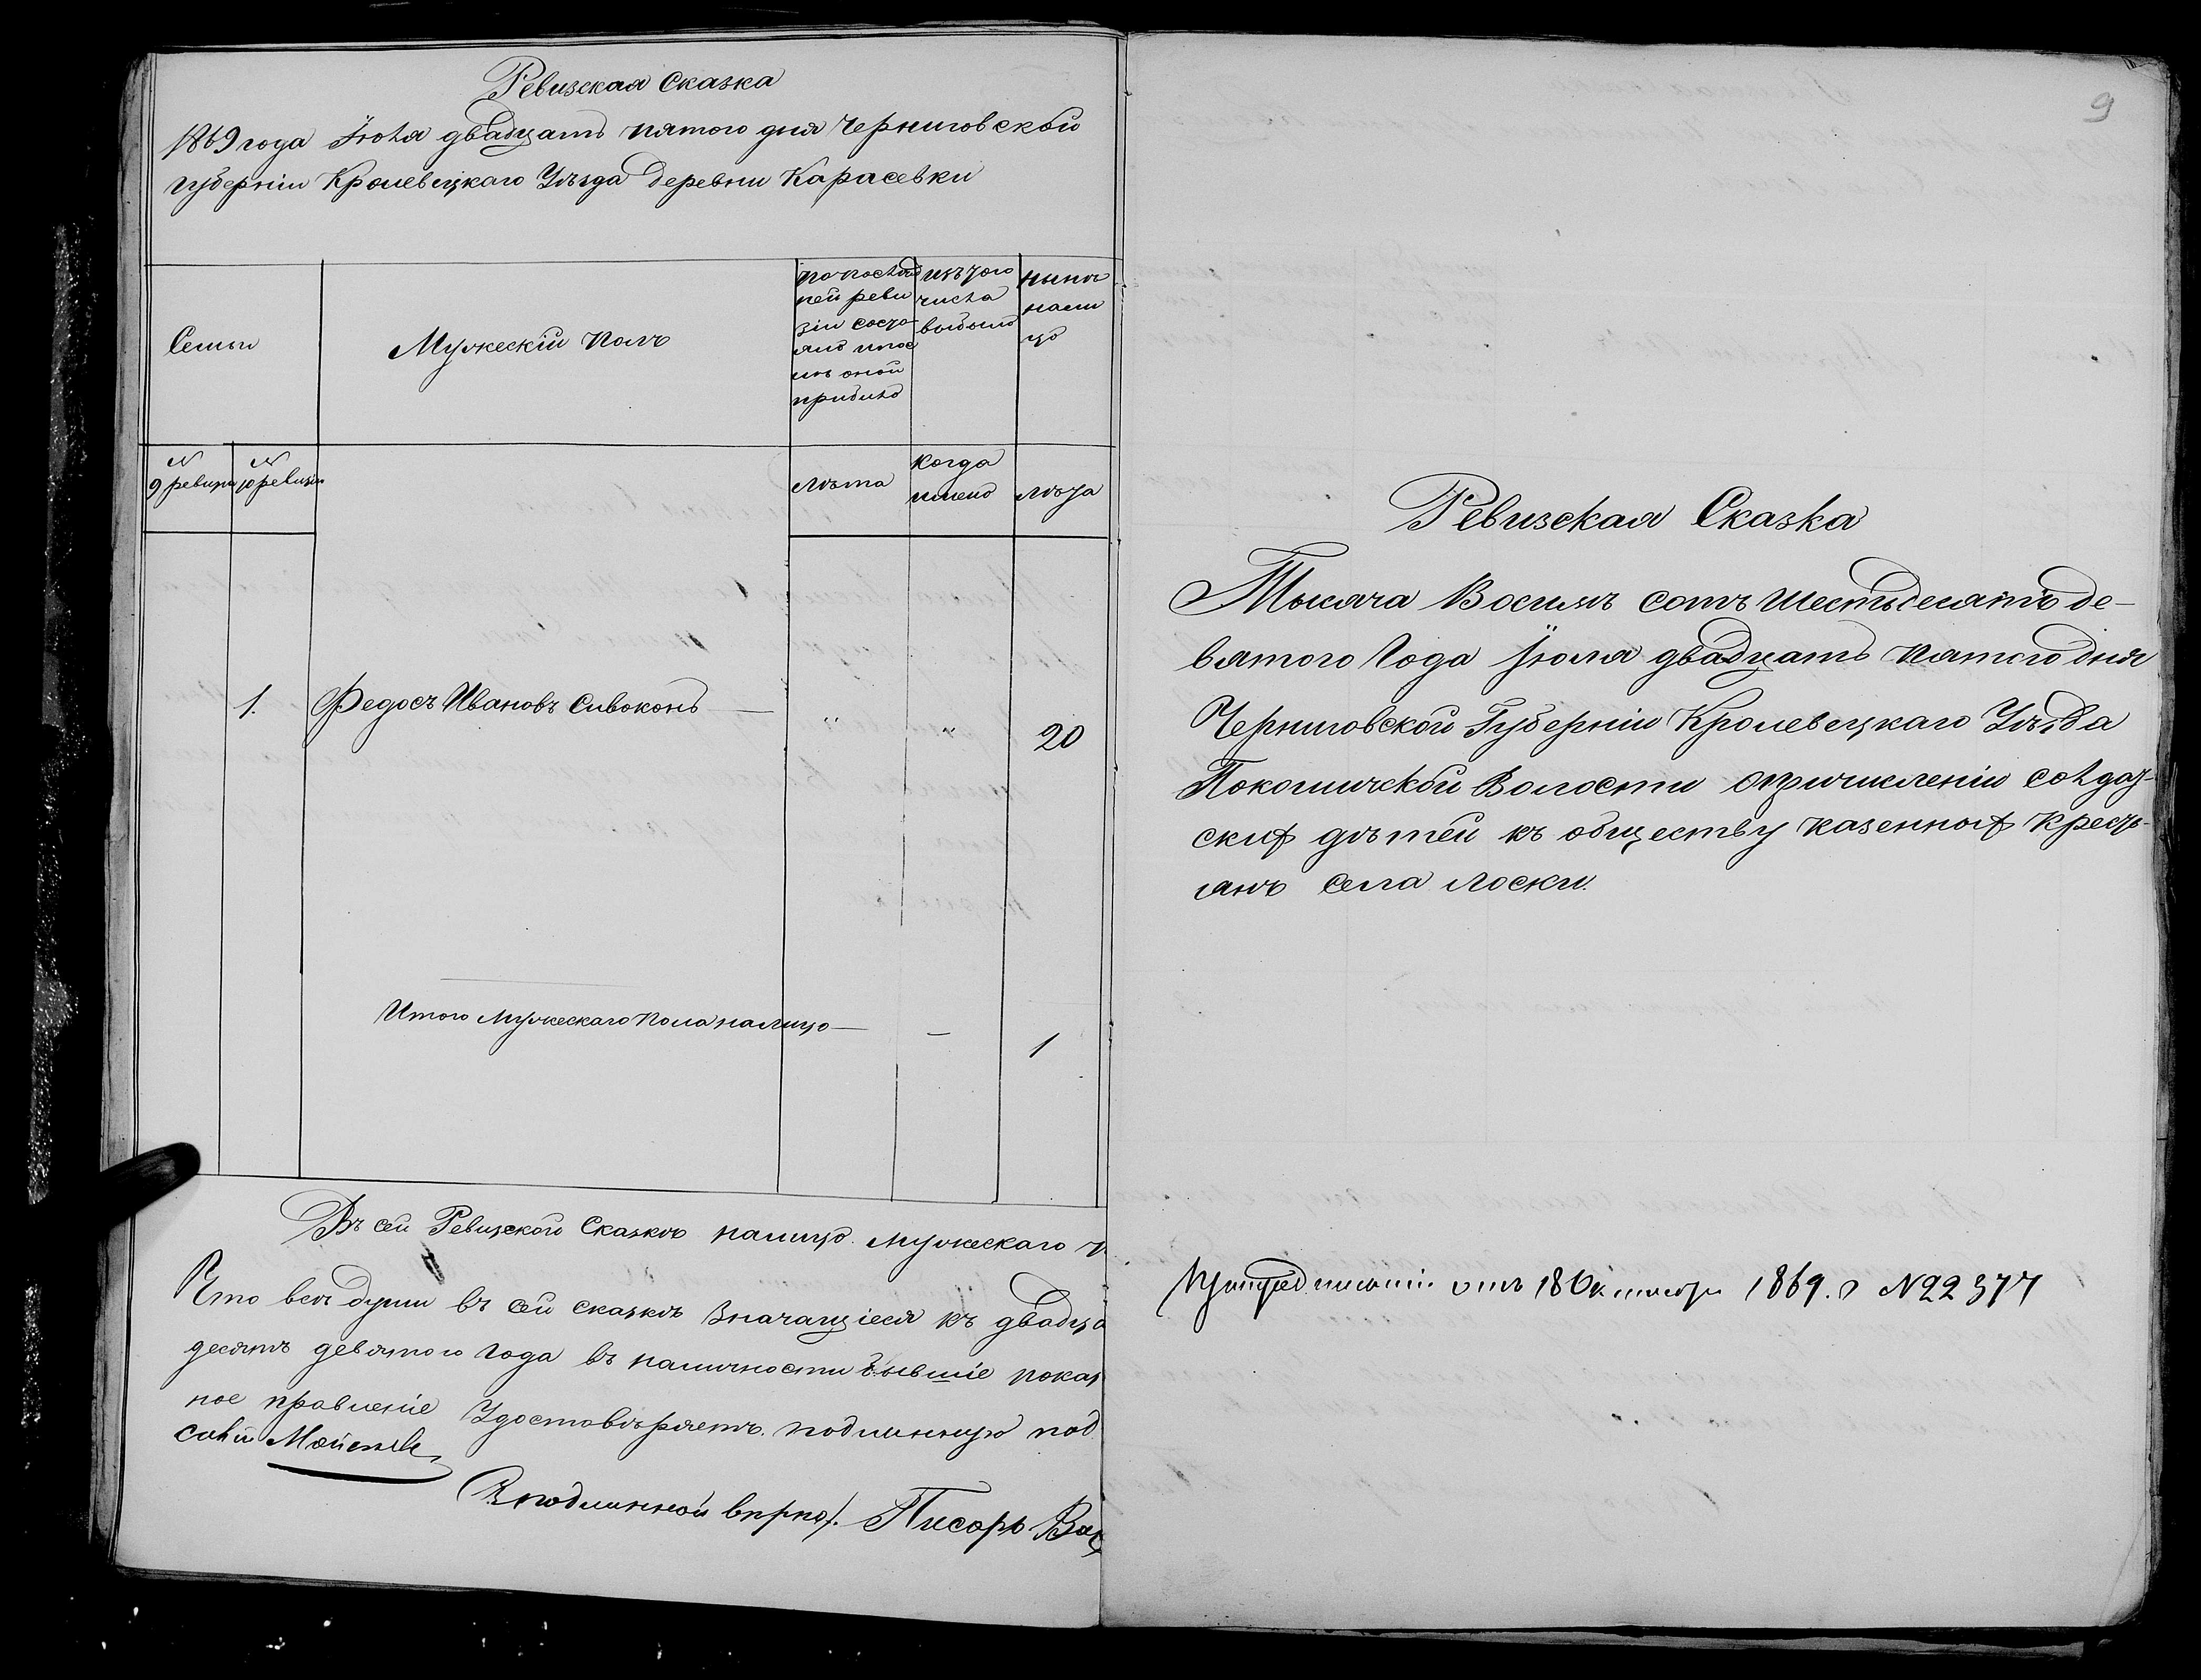 Ревизская Сказка
1869 года Іюля двадцать пятого дня Черниговской
губерніи Кролевецкаго Уѣзда деревни Карасевки
Семьи
Мужескій полъ
по послѣд
ней реви
зіи состо
яло и пос
лѣ оной
прибыло
изъ того
числа
выбыло
нынѣ
нали
цо
№
9 ревизіи
№
10 ревизіи
лѣта
когда
имено
лѣта
1. Федосъ Ивановъ Сивоконь — " " 20
Итого Мужескаго Пола налицо — — 1
Въ сей Ревизской Сказкѣ налицо мужескаго п
Что всѣ души въ сей сказкѣ значащіеся къ двадца
десятъ девятого Года въ наличности бывшіе показ
ное правленіе Удостовѣряетъ. подлинную под
Съ подлинной вѣрно. Писарь
9
Ревизская Сказка
Тысяча Восимъ сотъ шестьдесятъ де-
вятого Года Іюля двадцать пятого дня
Черниговской Губерніи Кролевецкаго Уѣзда
Покошичской Волости о причисленіи солдат-
скихъ дѣтей къ обществу казенныхъ кресть-
янъ села Лоски.
При предписаніи отъ 18 Октября 1869. г №22377